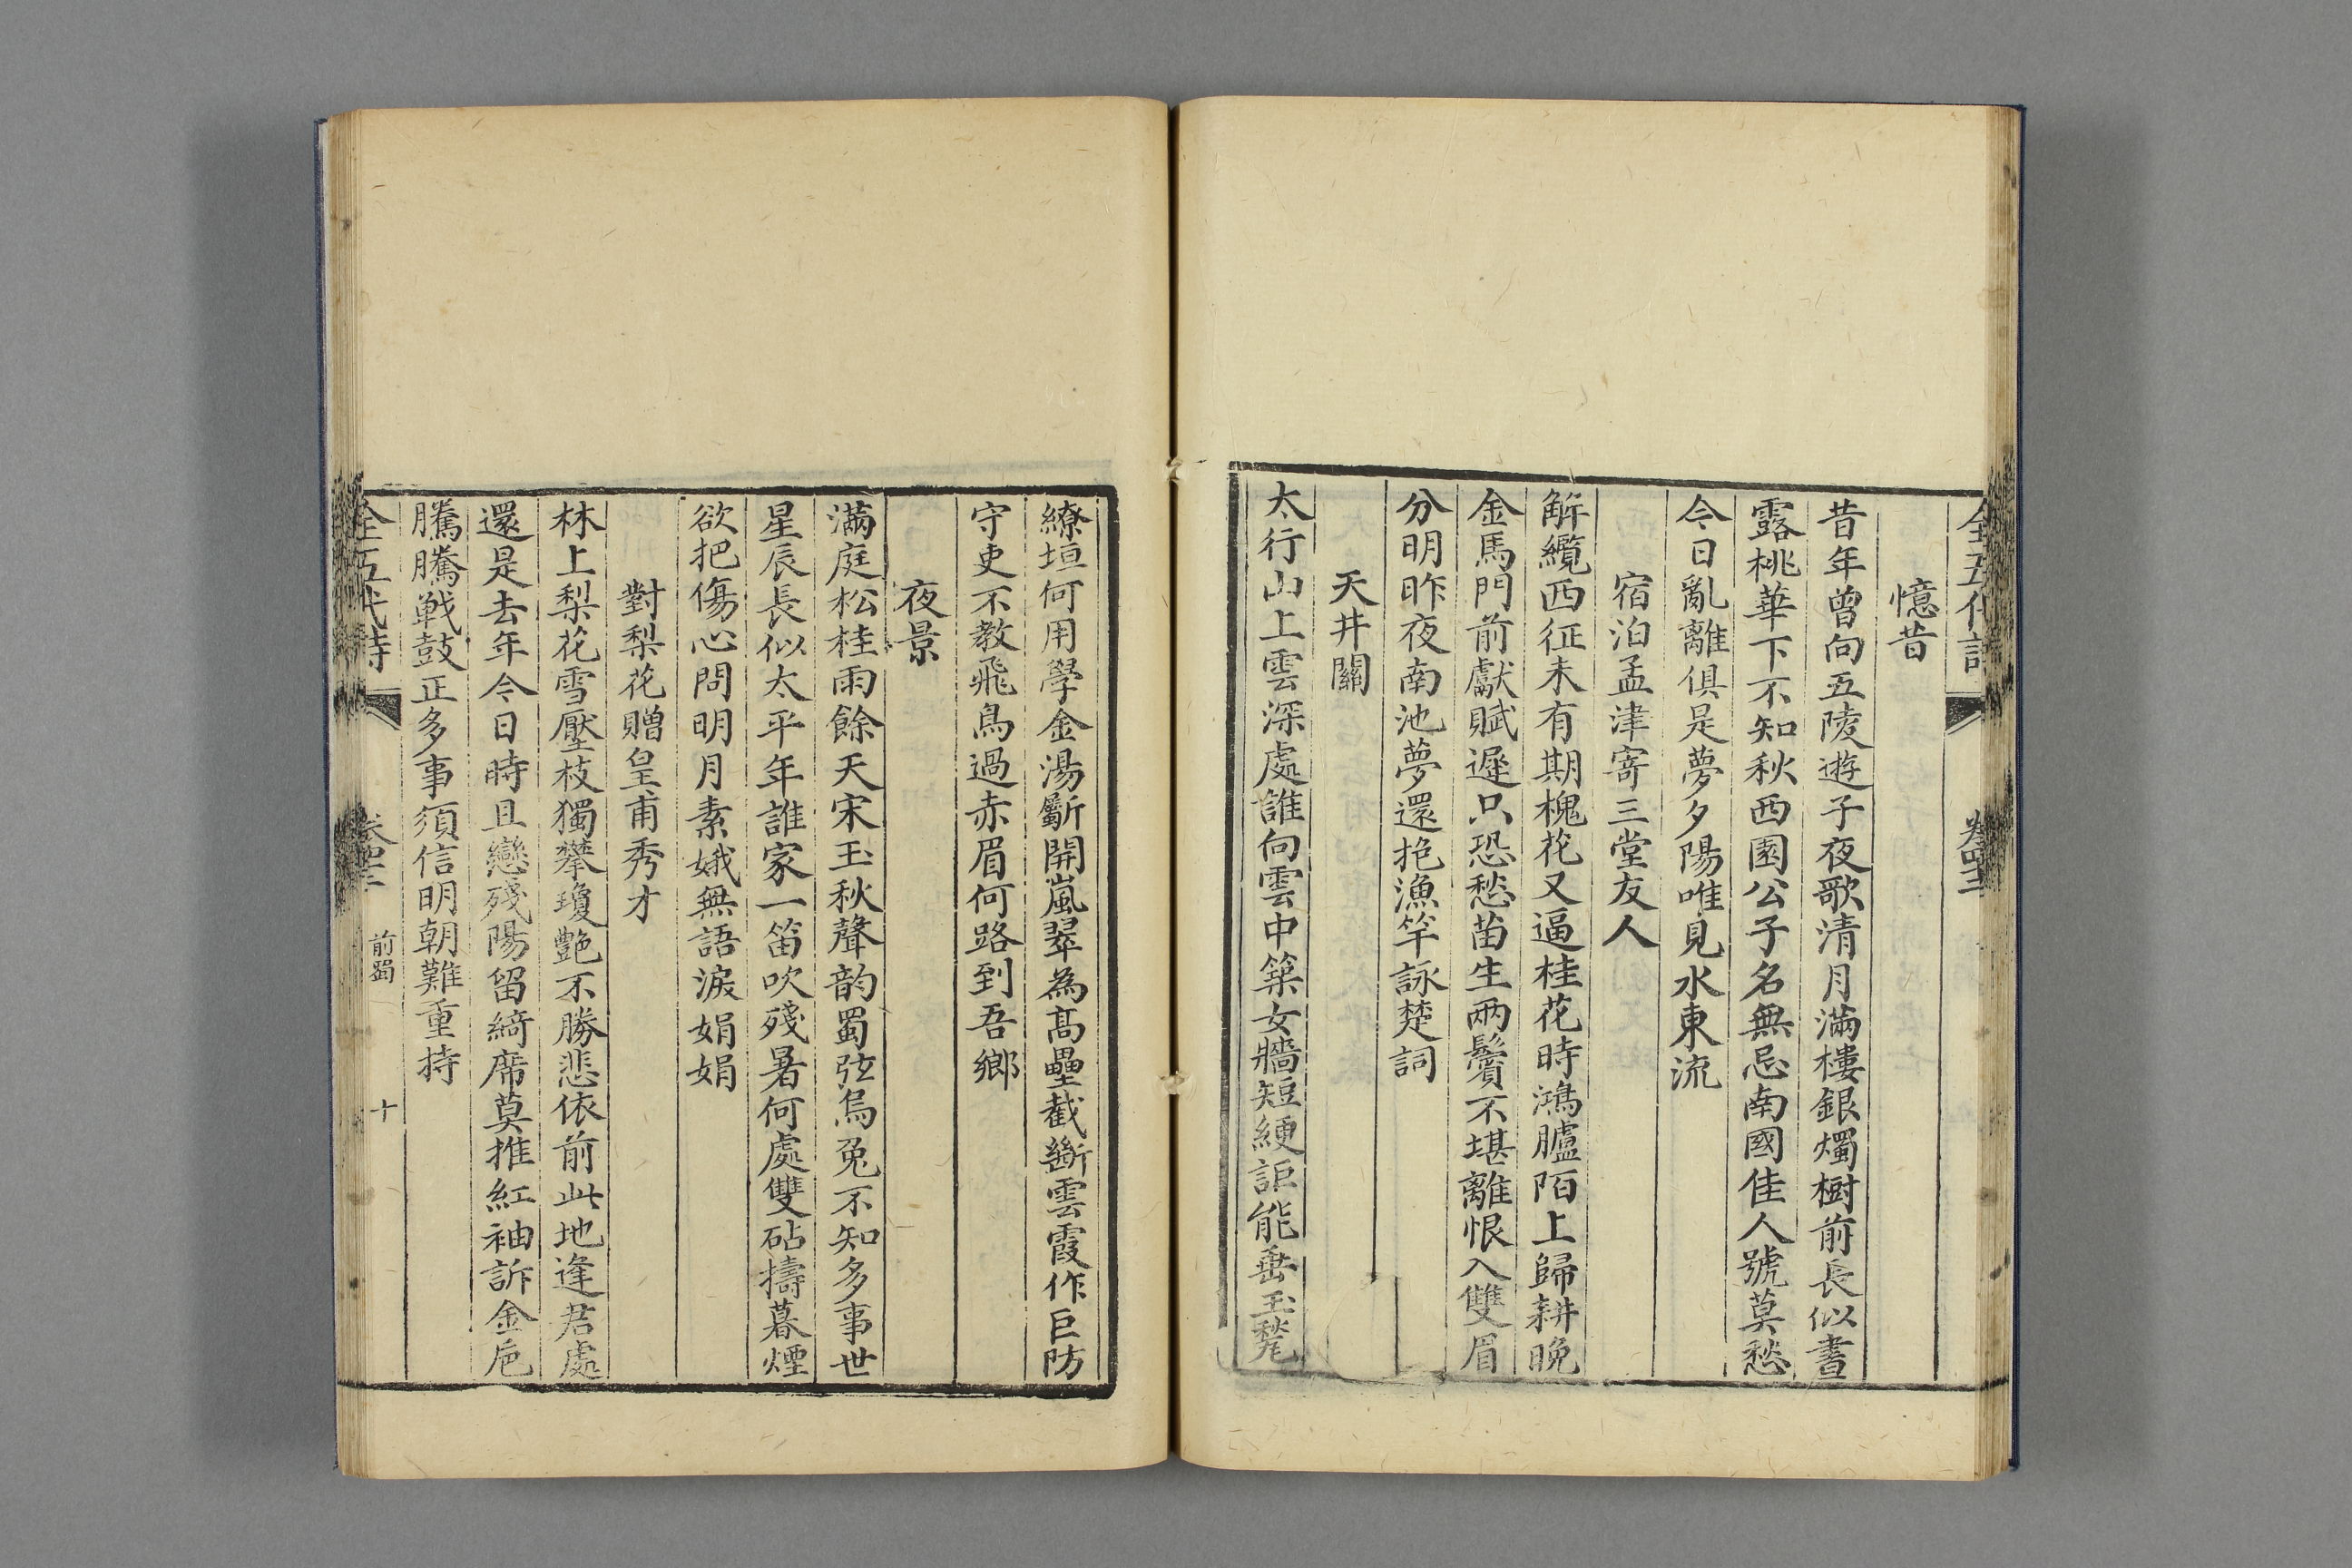 全五代詩
卷四十二
憶昔
昔年曾向五陵遊子夜歌清月滿樓銀燭樹前長似晝
露桃華下不知秋西園公子名無忌南國佳人號莫愁
今日亂離俱是夢夕陽唯見水東流
宿泊孟津寄三堂友人
解纜西征未有期槐花又逼桂花時鴻臚陌上歸耕晚
金馬門前獻賦遲只恐愁苗生兩鬢不堪離恨入雙眉
分明昨夜南池夢還抱漁竿詠楚詞
天井關
太行山上雲深處誰向雲中築女牆短綆詎能垂玉甃
繚垣何用學金湯斸開嵐翠為高壘截斷雲霞作巨防
守吏不教飛鳥過赤眉何路到吾鄉
夜景
滿庭松桂雨餘天宋玉秋聲韵蜀弦烏兔不知多事世
星辰長似太平年誰家一笛吹殘暑何處雙砧擣暮煙
欲把傷心問明月素娥無語淚娟娟
對梨花贈皇甫秀才
林上梨花雪壓枝獨攀瓊艷不勝悲依前此地逢君處
還是去年今日時且戀殘陽留綺席莫推紅袖訴金巵
騰騰戰鼓正多事須信明朝難重持
全五代詩
卷四十二
前蜀
十